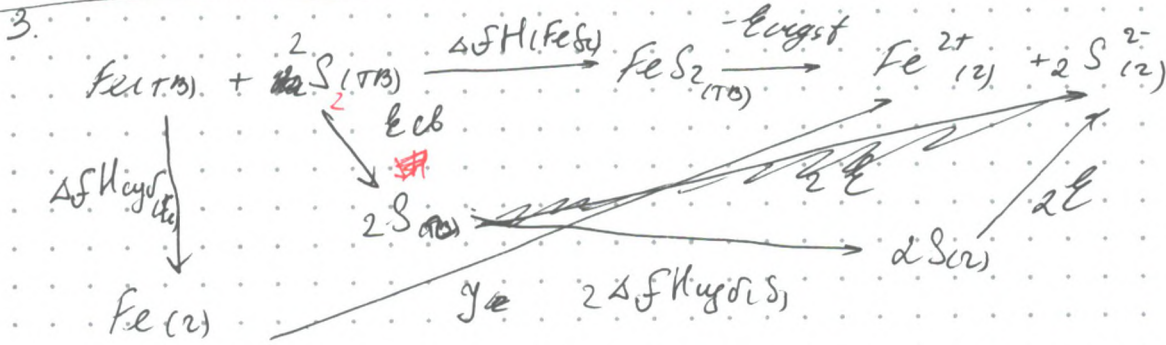 3.
Fe(тв) + 2 S 2 (тв) ΔfH(FeS2) FeS2 (тв) -Eкрист Fe 2+ (г) + 2 S 2- (г)
Eсв
ΔfHсуб(Fe) 2 E
2 S (тв) 2E
2S(г)
Fe (г) Je 2ΔfHсуб(S)